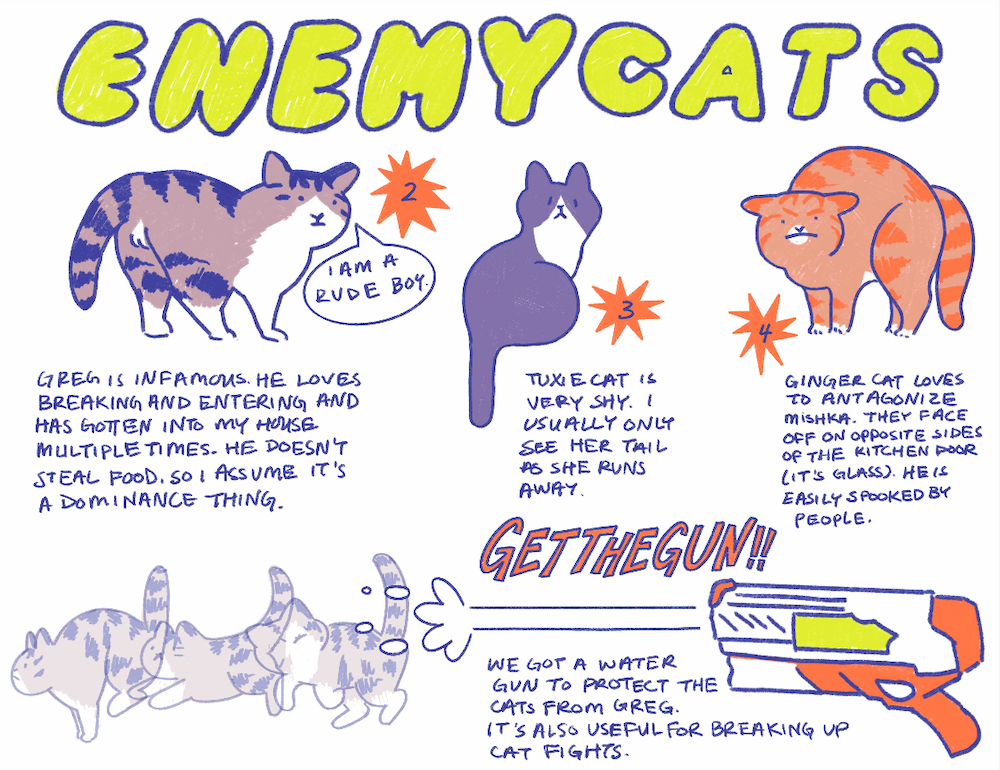 ENEMY CATS
2
I AM A
RUDE BOY.
GREG IS INFAMOUS. HE LOVES
BREAKING AND ENTERING AND
HAS GOTTEN INTO MY HOUSE
MULTIPLE TIMES. HE DOESN'T
STEAL FOOD. SO I ASSUME IT'S
A DOMINANCE THING.
3
TUXIE CAT IS
VERY SHY. I
USUALLY ONLY
SEE HER TAIL
AS SHE RUNS
AWAY.
4
GINGER CAT LOVES
TO ANTAGONIZE
MISHKA. THEY FACE
OFF ON OPPOSITE SIDES
OF THE KITCHEN DOOR
(IT'S GLASS). HE IS
EASILY SPOOKED BY
PEOPLE.
GET THE GUN!!
WE GOT A WATER
GUN TO PROTECT THE
CATS FROM GREG.
IT'S ALSO USEFUL FOR BREAKING UP
CAT FIGHTS.